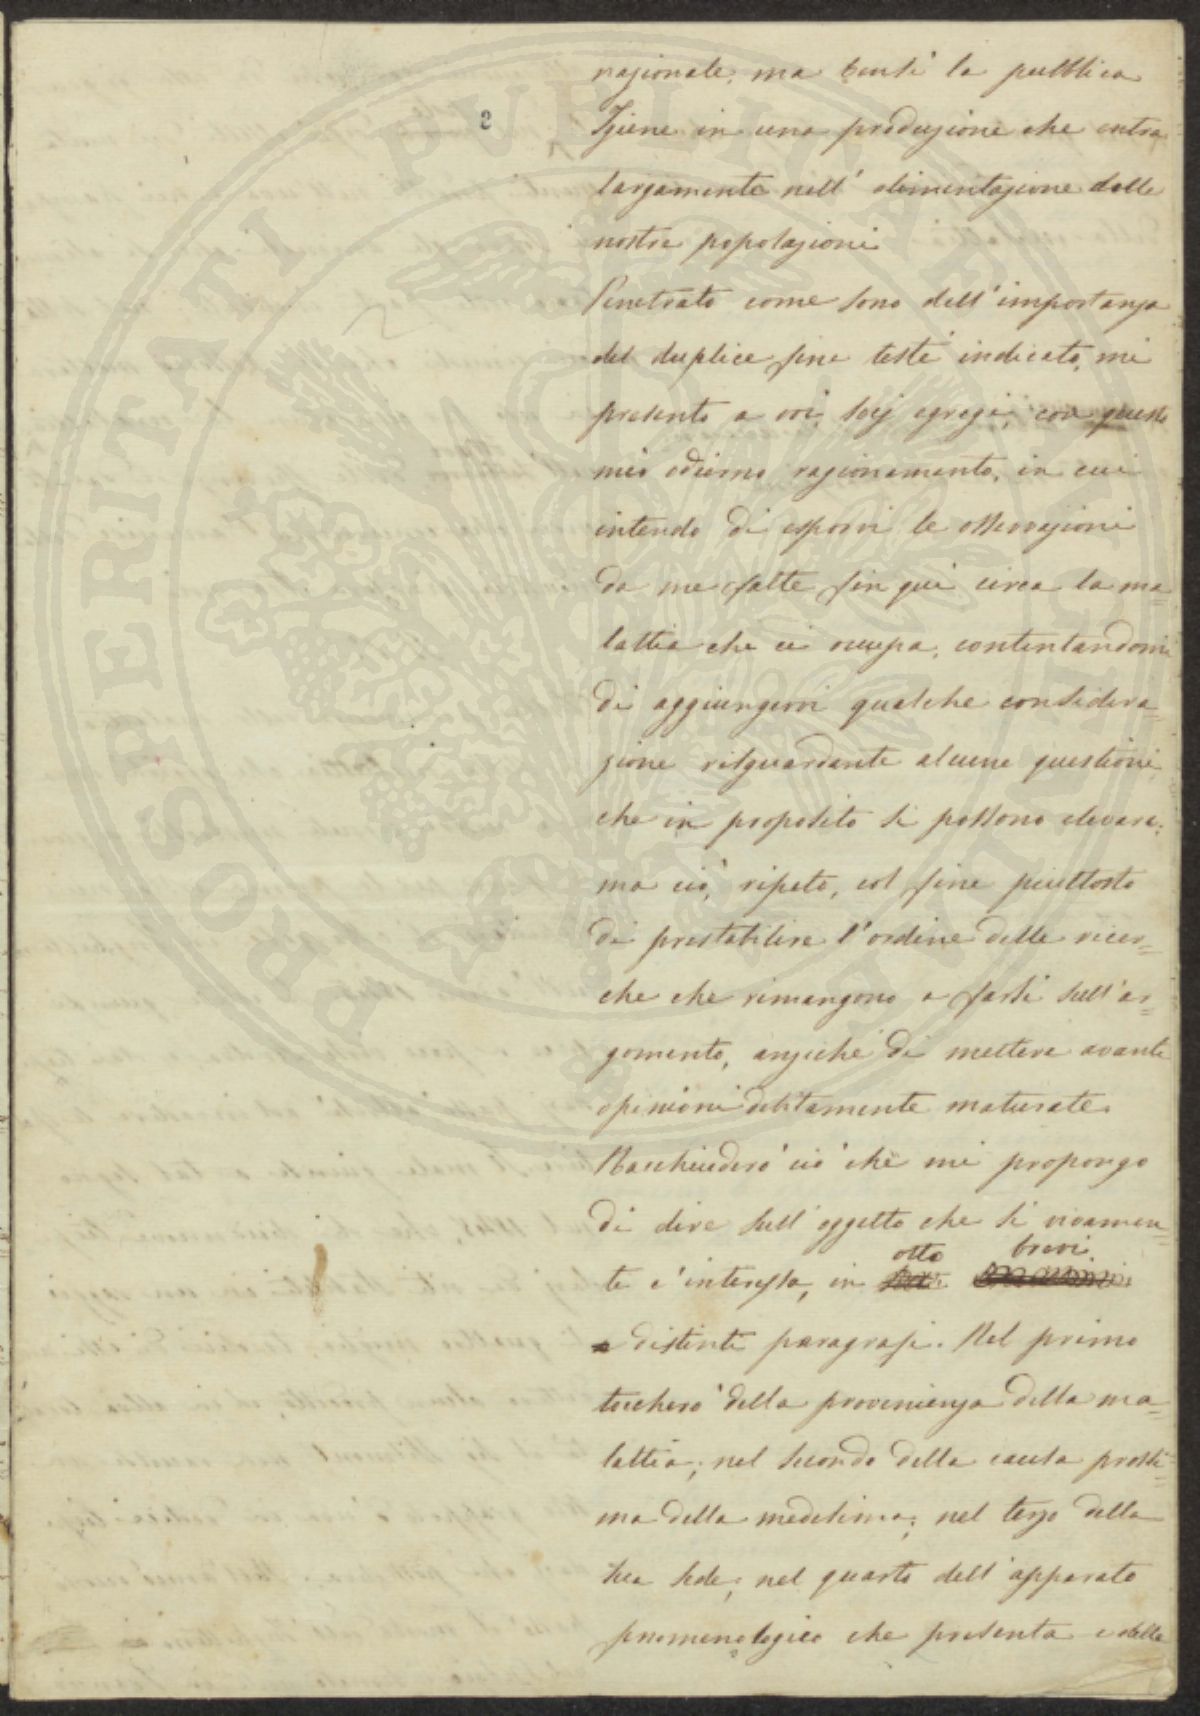 2
nazionale, ma bensì la pubblica
Igiene in una produzione che entra
largamente nell' alimentazione delle
nostre popolazioni
Penetrato come sono dell' importanza
del duplice fine testè indicato, mi
presento a voi, socj egregi, con questo
mio odierno ragionamento, in cui
intendo di esporvi le osservazioni
da me fatte fin quì circa la ma=
lattia che ci occupa, contentandomi
di aggiungervi qualche considera=
zione risguardante alcune questioni,
che in proposito si possono elevare;
ma ciò, ripeto, col fine piuttosto
di prestabilire l'ordine delle ricer=
che che rimangono a farsi sull'ar=
gomento, anzichè di mettere avanti
opinioni debitamente maturate.
Racchiuderò ciò che mi propongo
di dire sull' oggetto che sì vivamen=
otto brevi
te c'interessa, in
e distinti paragrafi. Nel primo
toccherò della provenienza della ma=
lattia; nel secondo della causa prossi=
ma della medesima; nel terzo della
sua sede; nel quarto dell' apparato
fnomenologico che presenta e della
PROSPERITATI PVBLICAE AVGENDAE